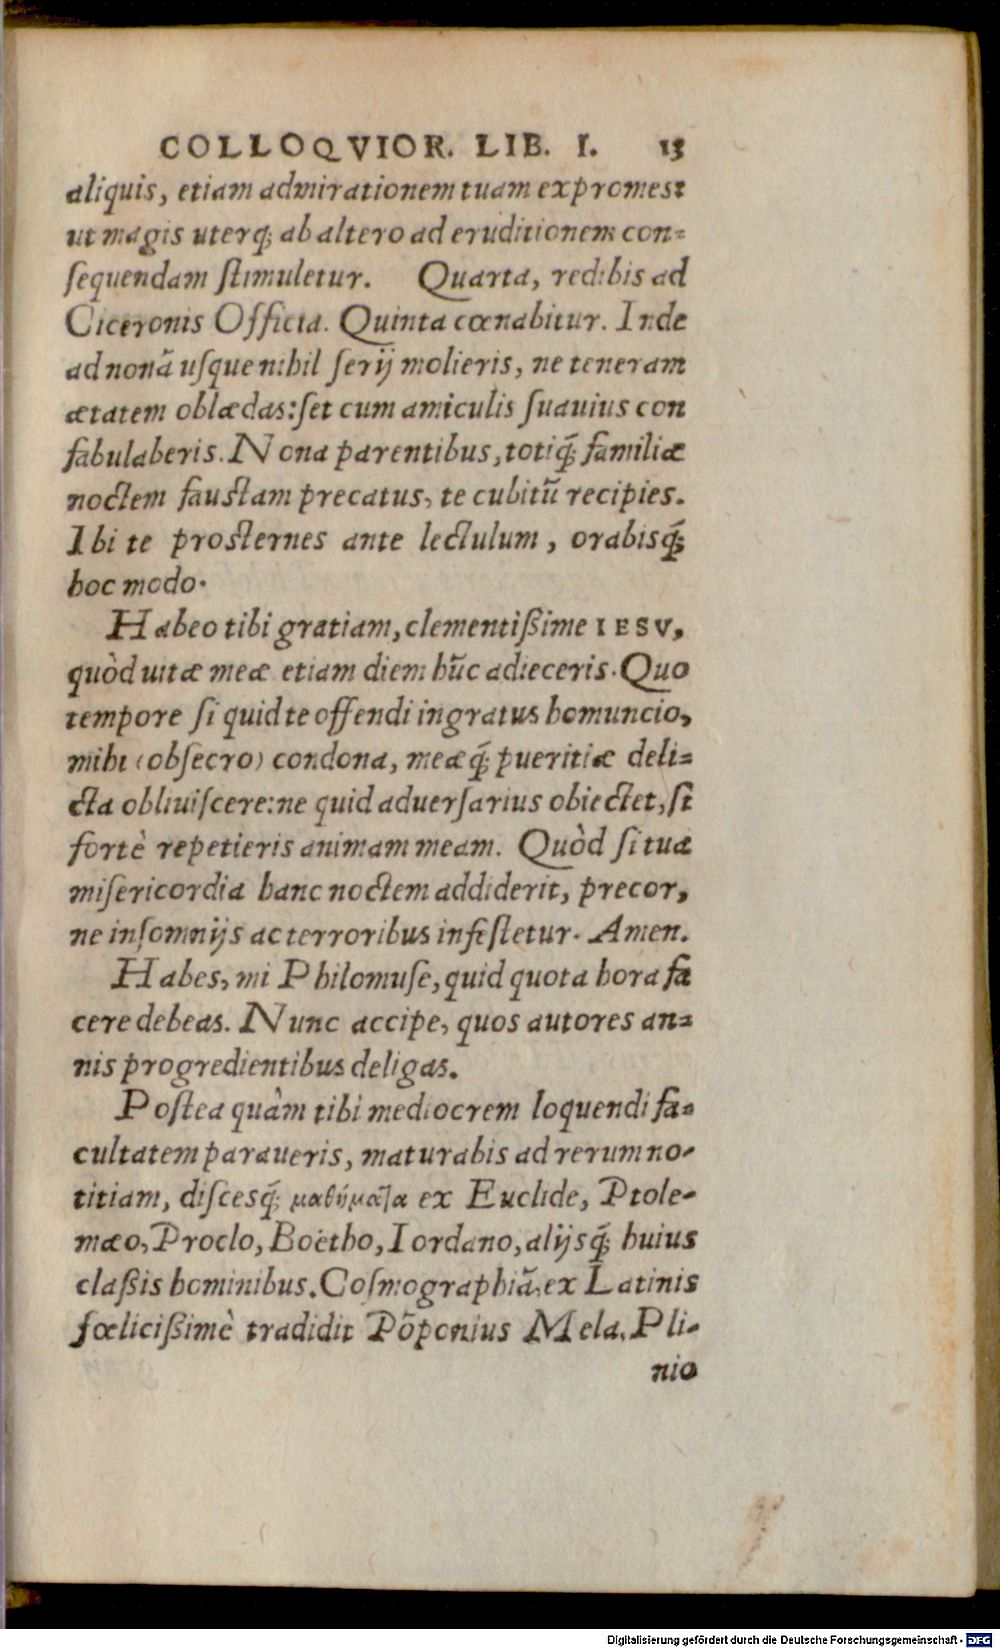 COLLOQVIOR. LIB. I. 13
aliquis, etiam admirationem tuam expromes:
ut magis uterq; ab altero ad eruditionem con-
sequendam stimuletur. Quarta, redibis ad
Ciceronis Officia. Quinta cœnabitur. Inde
ad nonã usque nihil serij molieris, ne teneram
ætatem oblædas: set cum amiculis suauius con
fabulaberis. Nona parentibus, totiq́; familiæ
noctem faustam precatus, te cubitũ recipies.
Ibi te prosternes ante lectulum, orabisq́;
hoc modo.
Habeo tibi gratiam, clementißime IESV,
quòd uitæ meæ etiam diem hũc adieceris. Quo
tempore si quid te offendi ingratus homuncio,
mihi (obsecro) condona, meæq́; pueritiæ deli-
cta obliuiscere: ne quid aduersarius obiectet, si
fortè repetieris animam meam. Quòd si tua
misericordia hanc noctem addiderit, precor,
ne insomnijs ac terroribus infestetur. Amen.
Habes, mi Philomuse, quid quota hora fa
cere debeas. Nunc accipe, quos autores an-
nis progredientibus deligas.
Postea quàm tibi mediocrem loquendi fa-
cultatem paraueris, maturabis ad rerum no-
titiam, discesq́; μαθήματα ex Euclide, Ptole-
mæo, Proclo, Boëtho, Iordano, alijsq́; huius
claßis hominibus. Cosmographiã, ex Latinis
fœlicißimè tradidit Põponius Mela. Pli-
nio
Digitalisierung gefördert durch die Deutsche Forschungsgemeinschaft - DFG